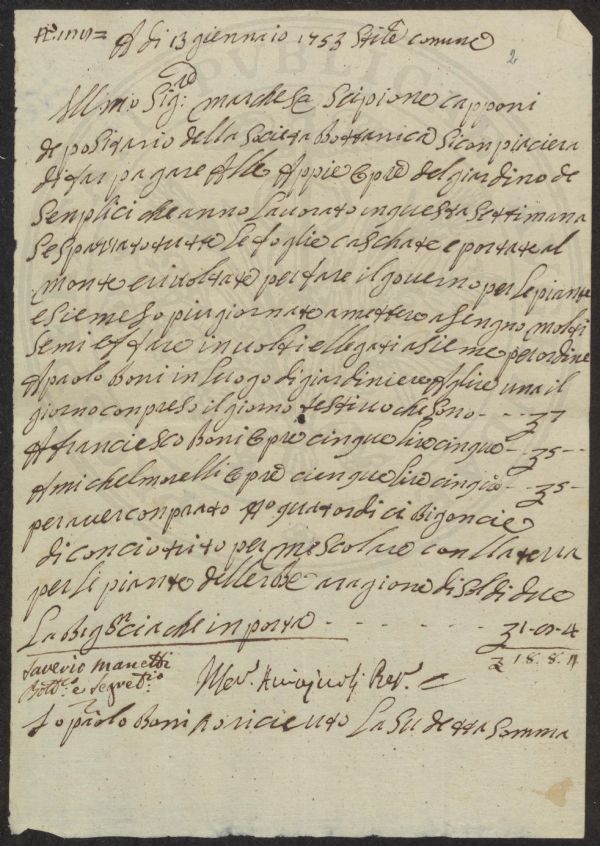 A di 13 giennaio 1753 Stile comune
2
Ill:mo Sig:re Marchese Scipione Capponi
depositario della Società Bottanica si conpiacierà
di far pagare Alle Appie Opre del giardino de
Senplici che anno Lavorato in questa Settimana
Se spazzato tutte Le foglie caschate e portate al
monte e rivoltate per fare il governo per Le piante
e Sieme So più giornate a mettere a Sengno Molti
Semi e fare involti e llegati asieme per ordine
A paolo Boni in Luogo di giardiniere A lire una il
giorno conpreso il giorno festivo che Sono - - - 7
A franciesco Boni Opre cinque lire cinque - - 5 - -
A michel morelli Opre cienque lire cinque - - 5 -
per aver conprato No quatordici Bigoncie
di concio trito per mescolare con lla terra
per li piante dell erbe a ragione di Soldi due
La Bigoncia che inporta - - - - - 1 - 8 - 4
18. 8. 4
Saverio Manetti
Bott:co e Segret:rio
Rev.
Io paolo Boni ò riciento La Su detta Somma